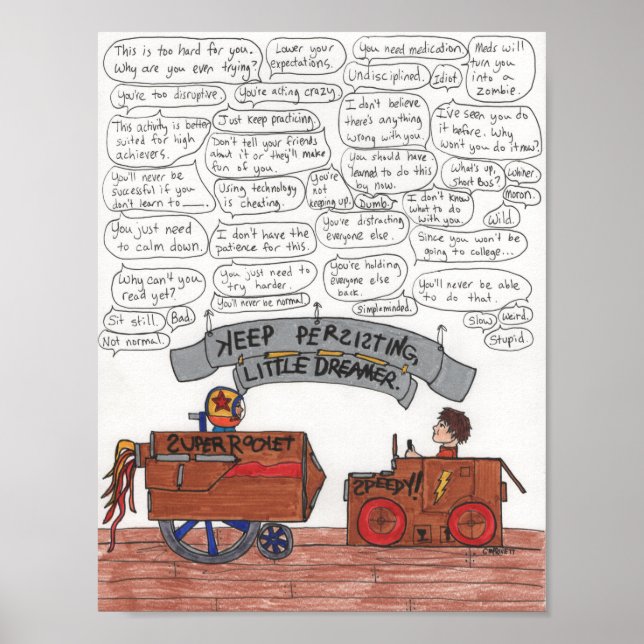 This is too hard for you.
Why are you even trying?
Lower your
expectations.
You need medication.
Meds will
turn you
into a
zombie.
Undisciplined.
Idiot.
You're too disruptive.
You're acting crazy.
I don't believe
there's anything
wrong with you.
I've seen you do
it before. Why
won't you do it now?
This activity is better
suited for high
achievers.
Just keep practicing.
Don't tell your friends
about it or they'll make
fun of you.
You should have
learned to do this
by now.
What's up,
Short Bus?
Whiner.
You'll never be
successful if you
don't learn to ____.
Using technology
is cheating.
You're
not
keeping up.
Dumb.
I don't know
what to do
with you.
moron.
Wild.
You just need
to calm down.
I don't have the
patience for this.
You're distracting
everyone else.
Since you won't be
going to college...
Why can't you
read yet?
You just need to
try harder.
You're holding
everyone else
back.
You'll never be able
to do that.
You'll never be normal.
Simpleminded.
Sit still.
Bad.
Slow
Weird.
Not normal.
Stupid.
KEEP PERSISTING,
LITTLE DREAMER.
SUPER ROCKET
SPEEDY!